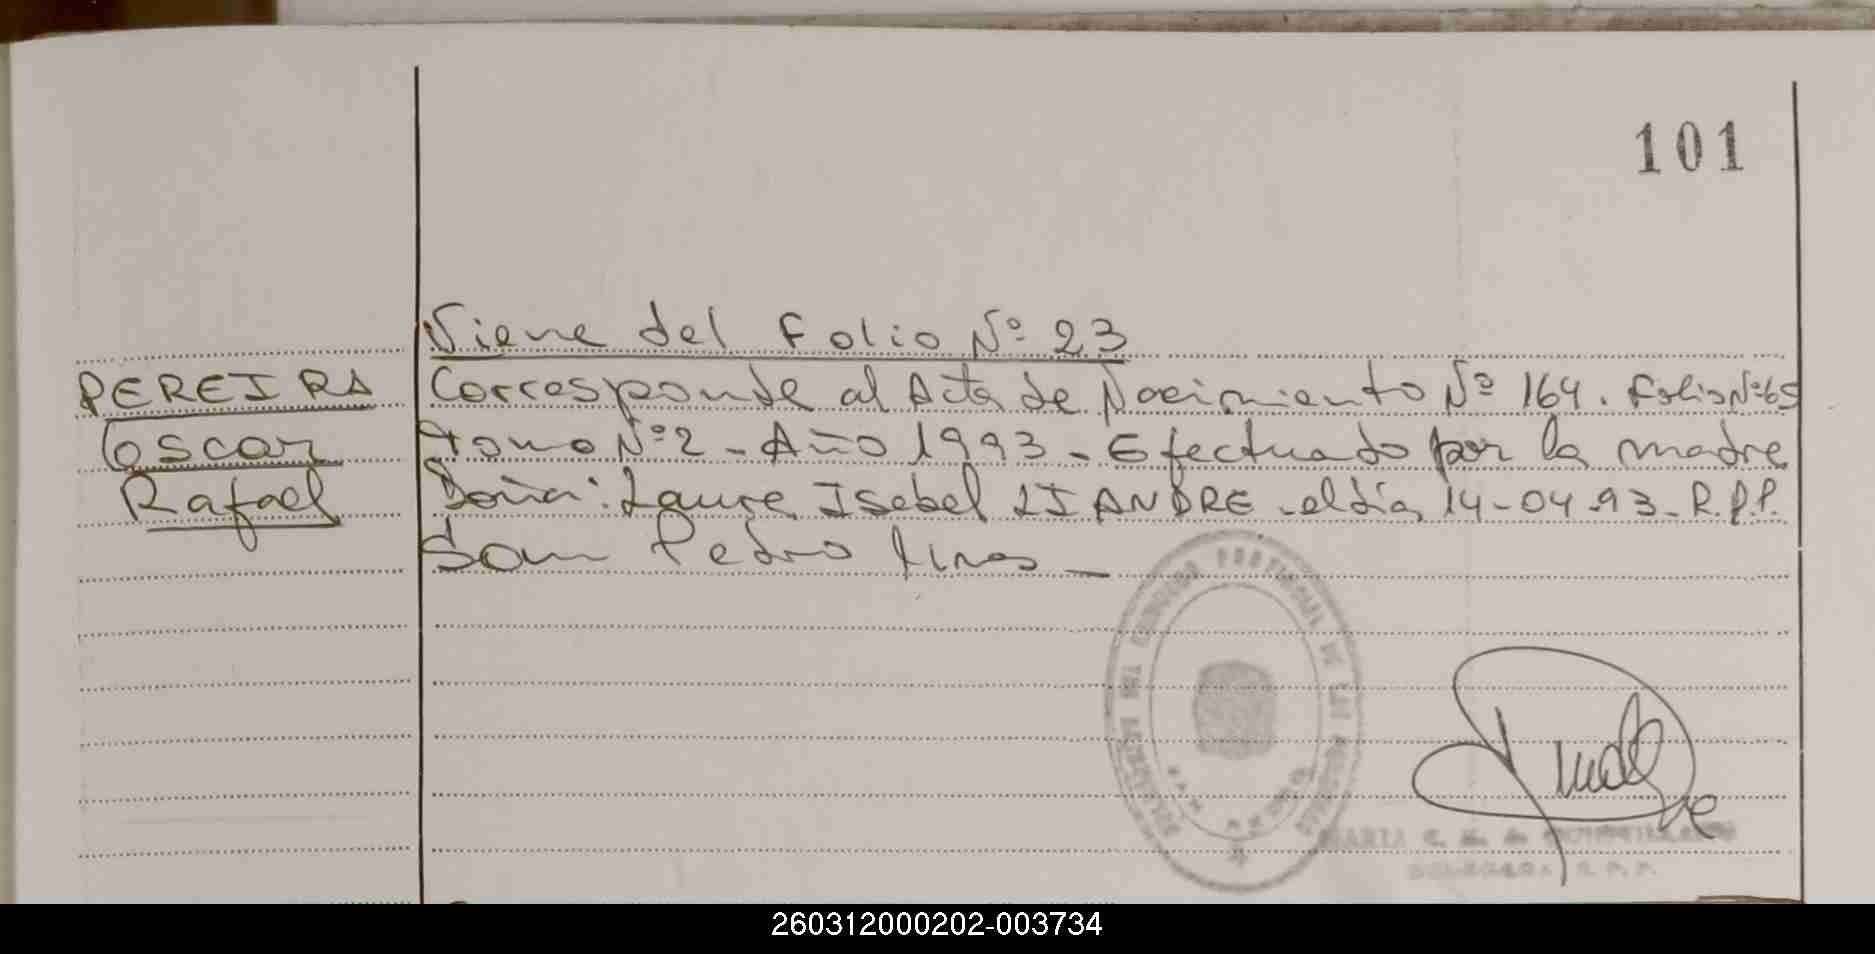 101
Viene del Folio Nº 23
PEREIRA
Oscar
Rafael
Corresponde al Acta de Nacimiento Nº 164. Folio Nº 65
tomo Nº 2 - Año 1993 - Efectuado por la madre
Doña: Laura Isabel LIANDRE - el día 14-04-93 - R.P.P.
San Pedro
DELEGACION DEL REGISTRO PROVINCIAL DE LAS PERSONAS
SAN PEDRO
MARIA C.
DELEGADA R. P. P.
260312000202-003734